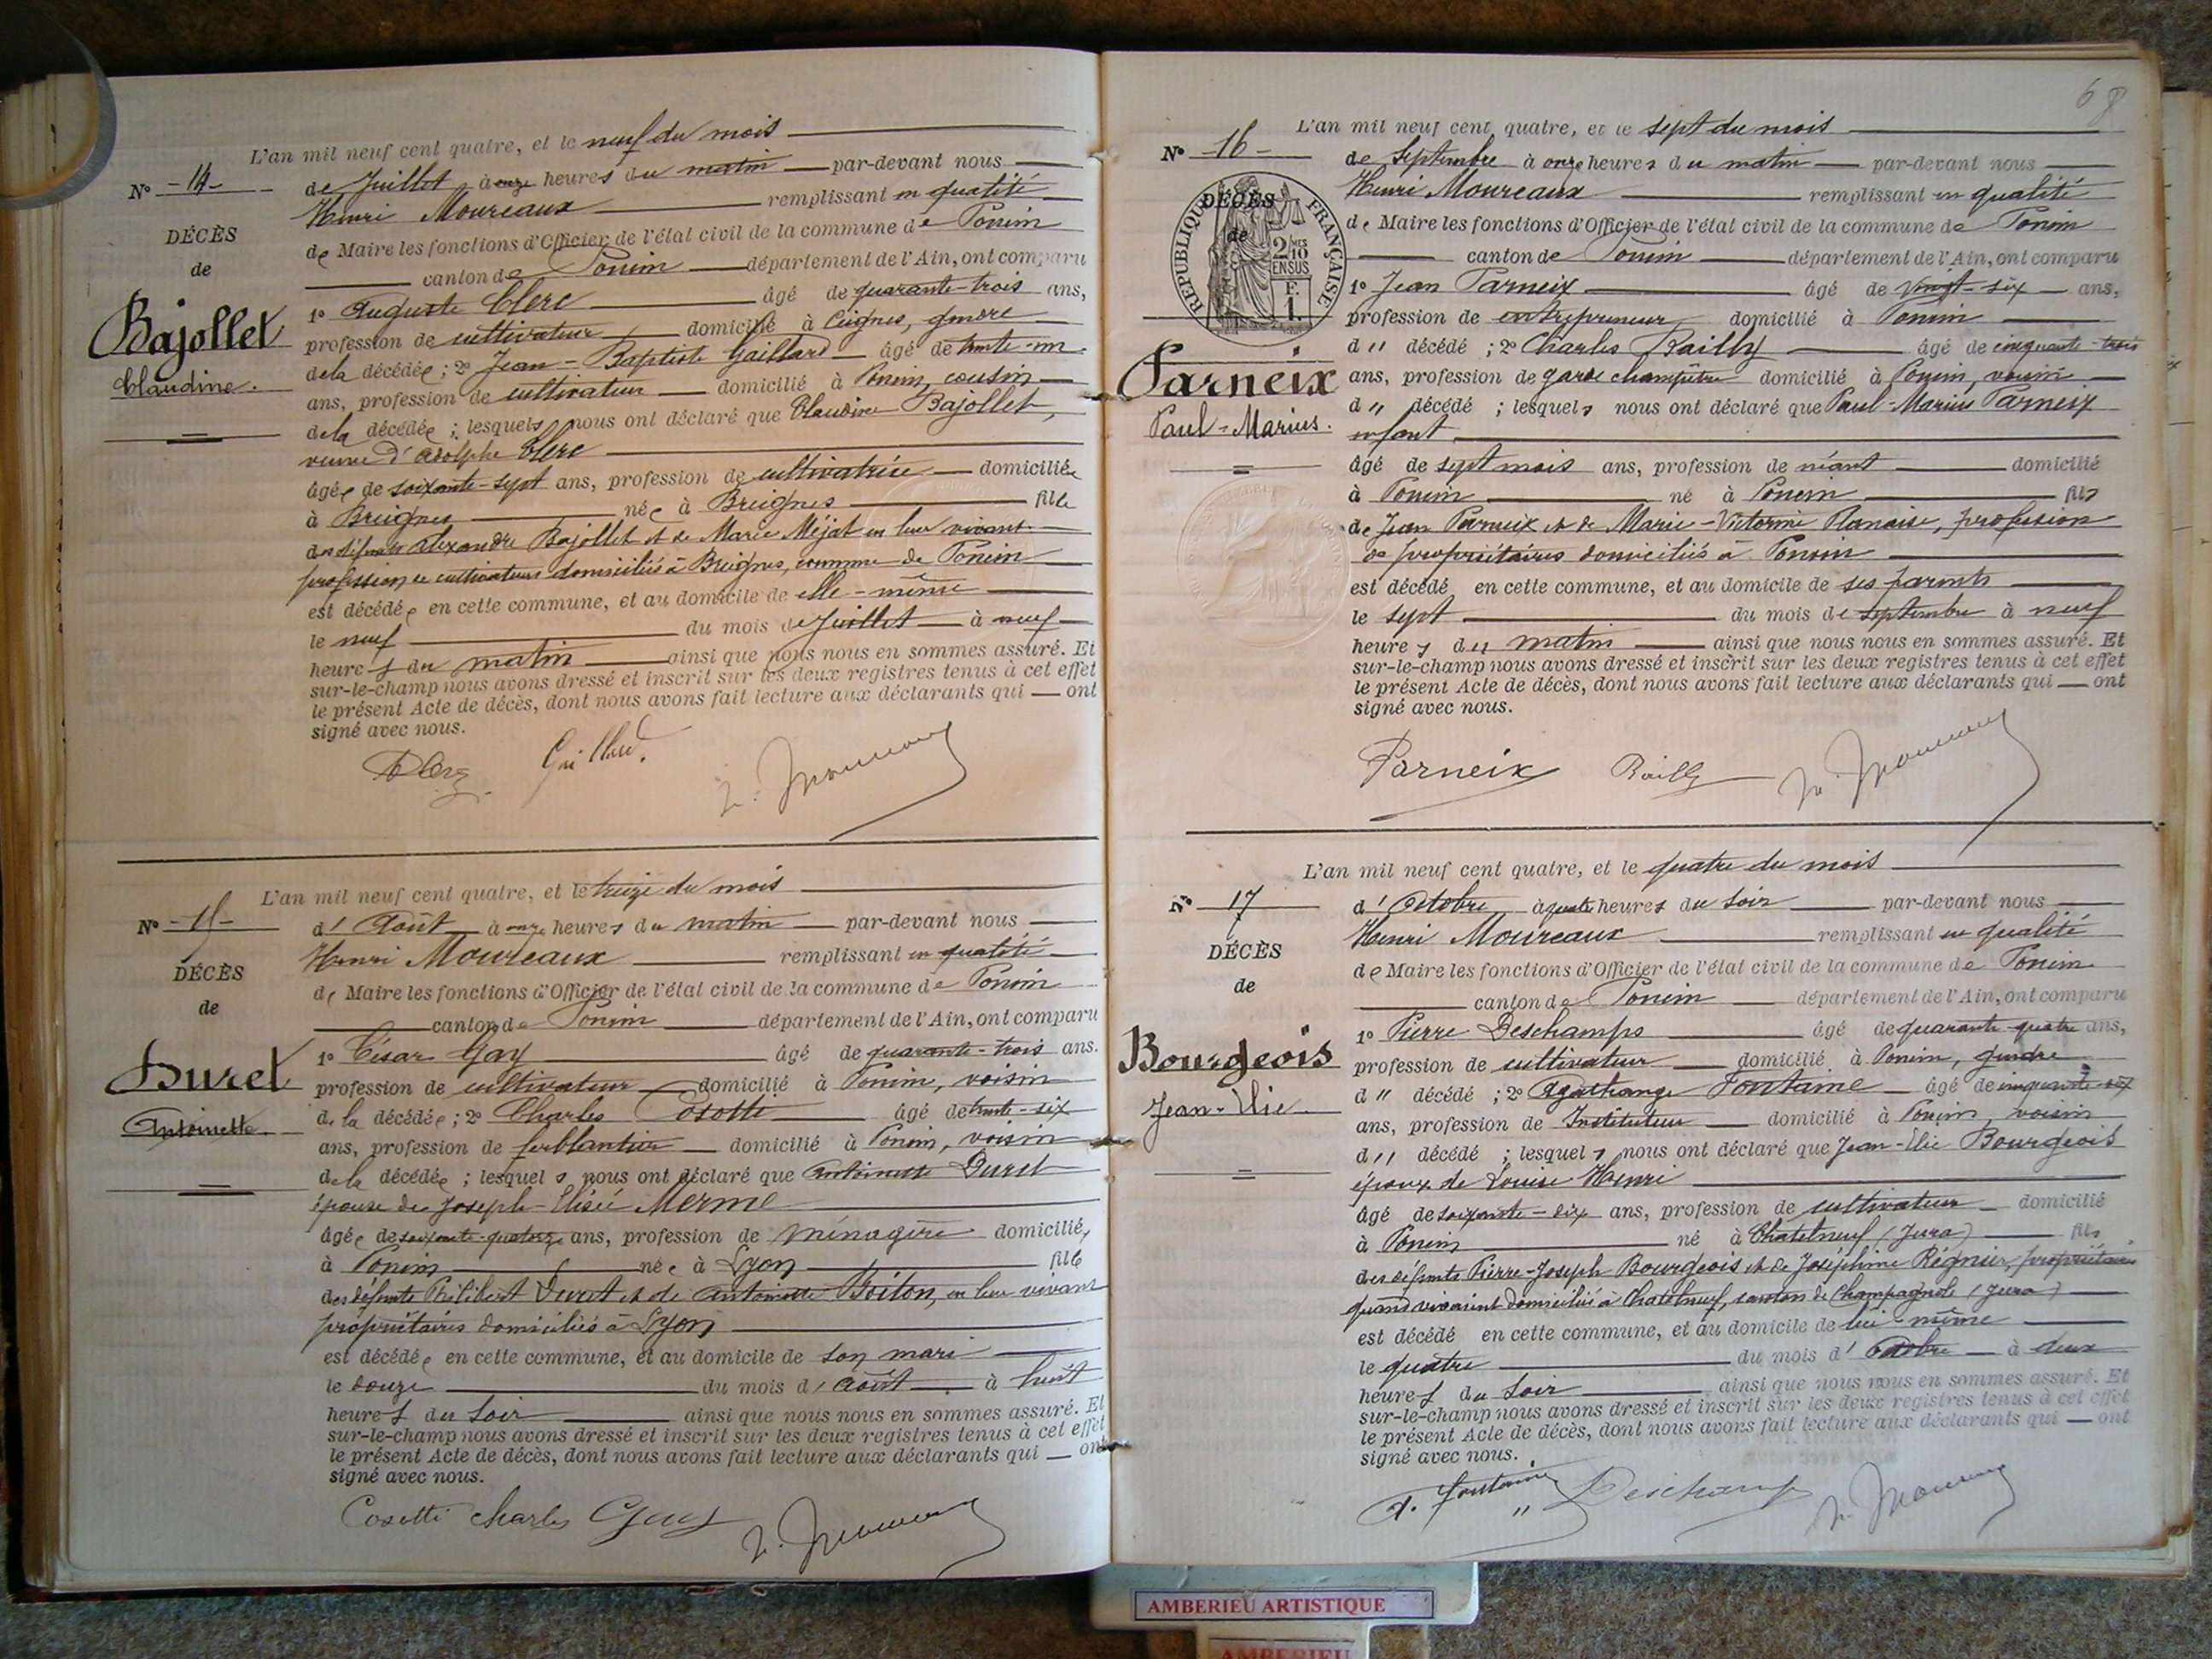 L'an mil neuf cent quatre, et le neuf du mois
N° - 14 -
de Juillet à onze heures du matin par-devant nous
Henri Moureaux remplissant en qualité
DÉCÈS
de Maire les fonctions d'Officier de l'état civil de la commune de Poncin
de
canton de Poncin département de l'Ain, ont comparu
1° Auguste Clerc âgé de quarante-trois ans,
Bajollet
profession de cultivateur domicilié à Ceignes, gendre
de la décédée ; 2° Jean-Baptiste Gaillard âgé de trente-un
Claudine.
ans, profession de cultivateur domicilié à Poncin, cousin
de la décédée ; lesquels nous ont déclaré que Claudine Bajollet,
veuve d'Adolphe Clerc
âgée de soixante-sept ans, profession de cultivatrice domiciliée
à Breignes née à Breignes fille
des défunts Alexandre Bajollet et de Marie Méjat en leur vivant
profession de cultivateurs domiciliés à Breignes, commune de Poncin
est décédée en cette commune, et au domicile de elle-même
le neuf du mois de Juillet à neuf
heures du matin ainsi que nous nous en sommes assuré. Et
sur-le-champ nous avons dressé et inscrit sur les deux registres tenus à cet effet
le présent Acte de décès, dont nous avons fait lecture aux déclarants qui ont
signé avec nous.
Gaillard
L'an mil neuf cent quatre, et le treize du mois
N° - 15 -
d' Août à onze heures du matin par-devant nous
Henri Moureaux remplissant en qualité
DÉCÈS
de Maire les fonctions d'Officier de l'état civil de la commune de Poncin
de
canton de Poncin département de l'Ain, ont comparu
1° César Gay âgé de quarante-trois ans.
Duret
profession de cultivateur domicilié à Poncin, voisin
de la décédée ; 2° Charles Cosotti âgé de trente-six
Antoinette.
ans, profession de ferblantier domicilié à Poncin, voisin
de la décédée ; lesquels nous ont déclaré que Antoinette Duret
épouse de Joseph-Elisée Merme
âgée de soixante-quatorze ans, profession de ménagère domiciliée
à Poncin née à Lyon fille
des défunts Philibert Duret et de Antoinette Boiton, en leur vivant
propriétaires domiciliés à Lyon
est décédée en cette commune, et au domicile de son mari
le douze du mois d'Août à huit
heures du soir ainsi que nous nous en sommes assuré. Et
sur-le-champ nous avons dressé et inscrit sur les deux registres tenus à cet effet
le présent Acte de décès, dont nous avons fait lecture aux déclarants qui ont
signé avec nous.
Cosotti Charles Gay
68
L'an mil neuf cent quatre, et le sept du mois
N° 16 -
de Septembre à onze heures du matin par-devant nous
Henri Moureaux remplissant en qualité
DÉCÈS
de Maire les fonctions d'Officier de l'état civil de la commune de Poncin
de
RÉPUBLIQUE FRANÇAISE
2/10 MES
EN SUS
F.
1.
canton de Poncin département de l'Ain, ont comparu
1° Jean Parneix âgé de vingt-six ans,
profession de entrepreneur domicilié à Poncin
d" décédé ; 2° Charles Railly âgé de cinquante-trois
Parneix
ans, profession de garde champêtre domicilié à Poncin, voisin
d" décédé ; lesquels nous ont déclaré que Paul-Marius Parneix
Paul-Marius.
enfant
âgé de sept mois ans, profession de néant domicilié
à Poncin né à Poncin fils
de Jean Parneix et de Marie-Victorine Planaise, profession
de propriétaires domiciliés à Poncin
est décédé en cette commune, et au domicile de ses parents
le sept du mois de septembre à neuf
heures du matin ainsi que nous nous en sommes assuré. Et
sur-le-champ nous avons dressé et inscrit sur les deux registres tenus à cet effet
le présent Acte de décès, dont nous avons fait lecture aux déclarants qui ont
signé avec nous.
Parneix Railly
L'an mil neuf cent quatre, et le quatre du mois
N° 17
d'Octobre à quatre heures du soir par-devant nous
Henri Moureaux remplissant en qualité
DÉCÈS
de Maire les fonctions d'Officier de l'état civil de la commune de Poncin
de
canton de Poncin département de l'Ain, ont comparu
1° Pierre Deschamps âgé de quarante-quatre ans,
Bourgeois
profession de cultivateur domicilié à Poncin, gendre
d" décédé ; 2° Agathange Fontaine âgé de cinquante-six
Jean-Elie.
ans, profession de Instituteur domicilié à Poncin, voisin
d" décédé ; lesquels nous ont déclaré que Jean-Elie Bourgeois
époux de Louise Henri
âgé de soixante-dix ans, profession de cultivateur domicilié
à Poncin né à Chatelneuf (Jura) fils
des défunts Pierre-Joseph Bourgeois et de Joséphine Régnier, propriétaires
quand vivaient domiciliés à Chatelneuf, canton de Champagnole (Jura)
est décédé en cette commune, et au domicile de lui-même
le quatre du mois d'Octobre à deux
heures du soir ainsi que nous nous en sommes assuré. Et
sur-le-champ nous avons dressé et inscrit sur les deux registres tenus à cet effet
le présent Acte de décès, dont nous avons fait lecture aux déclarants qui ont
signé avec nous.
A. Fontaine Deschamps
AMBERIEU ARTISTIQUE
AMBERIEU